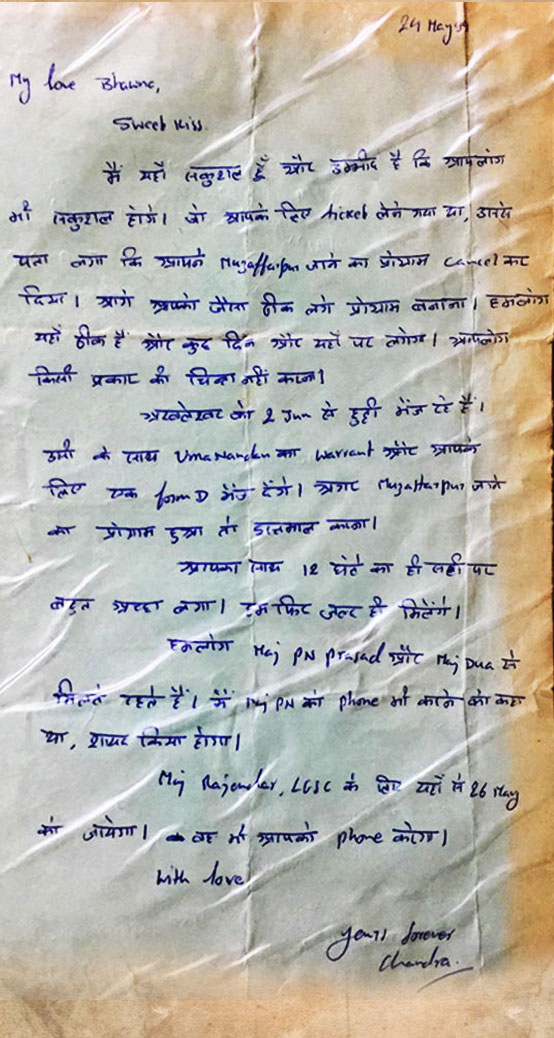 24 May 99
My love Bhawna,
Sweet Kiss.
मैं यहाँ सकुशल हूँ और उम्मीद है कि आपलोग
भी सकुशल होंगे। जो आपके लिए ticket लेने गया था, उससे
पता लगा कि आपने Muzaffarpur जाने का प्रोग्राम cancel कर
दिया। आगे आपको जैसा ठीक लगे प्रोग्राम बनाना। हमलोग
यहाँ ठीक हैं और कुछ दिन और यहाँ पर लगेगा। आपलोग
किसी प्रकार की चिन्ता नहीं करना।
अखलेश्वर को 2 Jun से छुट्टी भेंज रहे हैं।
उसी के साथ Umanandan का warrant और आपके
लिए एक form D भेंज देंगे। अगर Muzaffarpur जाने
का प्रोग्राम हुआ तो इस्तमाल करना।
आपका साथ 12 घंटे का ही सही पर
बहुत अच्छा लगा। हम फिर जल्द ही मिलेंगे।
हमलोग Maj PN Prasad और Maj Dua से
मिलते रहते हैं। मैं Maj PN को phone भी करने को कहा
था, शायद किया होगा।
Maj Rajender, LGSC के लिए यहाँ से 26 May
को जायेगा। वह भी आपको phone करेगा।
With love
yours forever
Chandra.